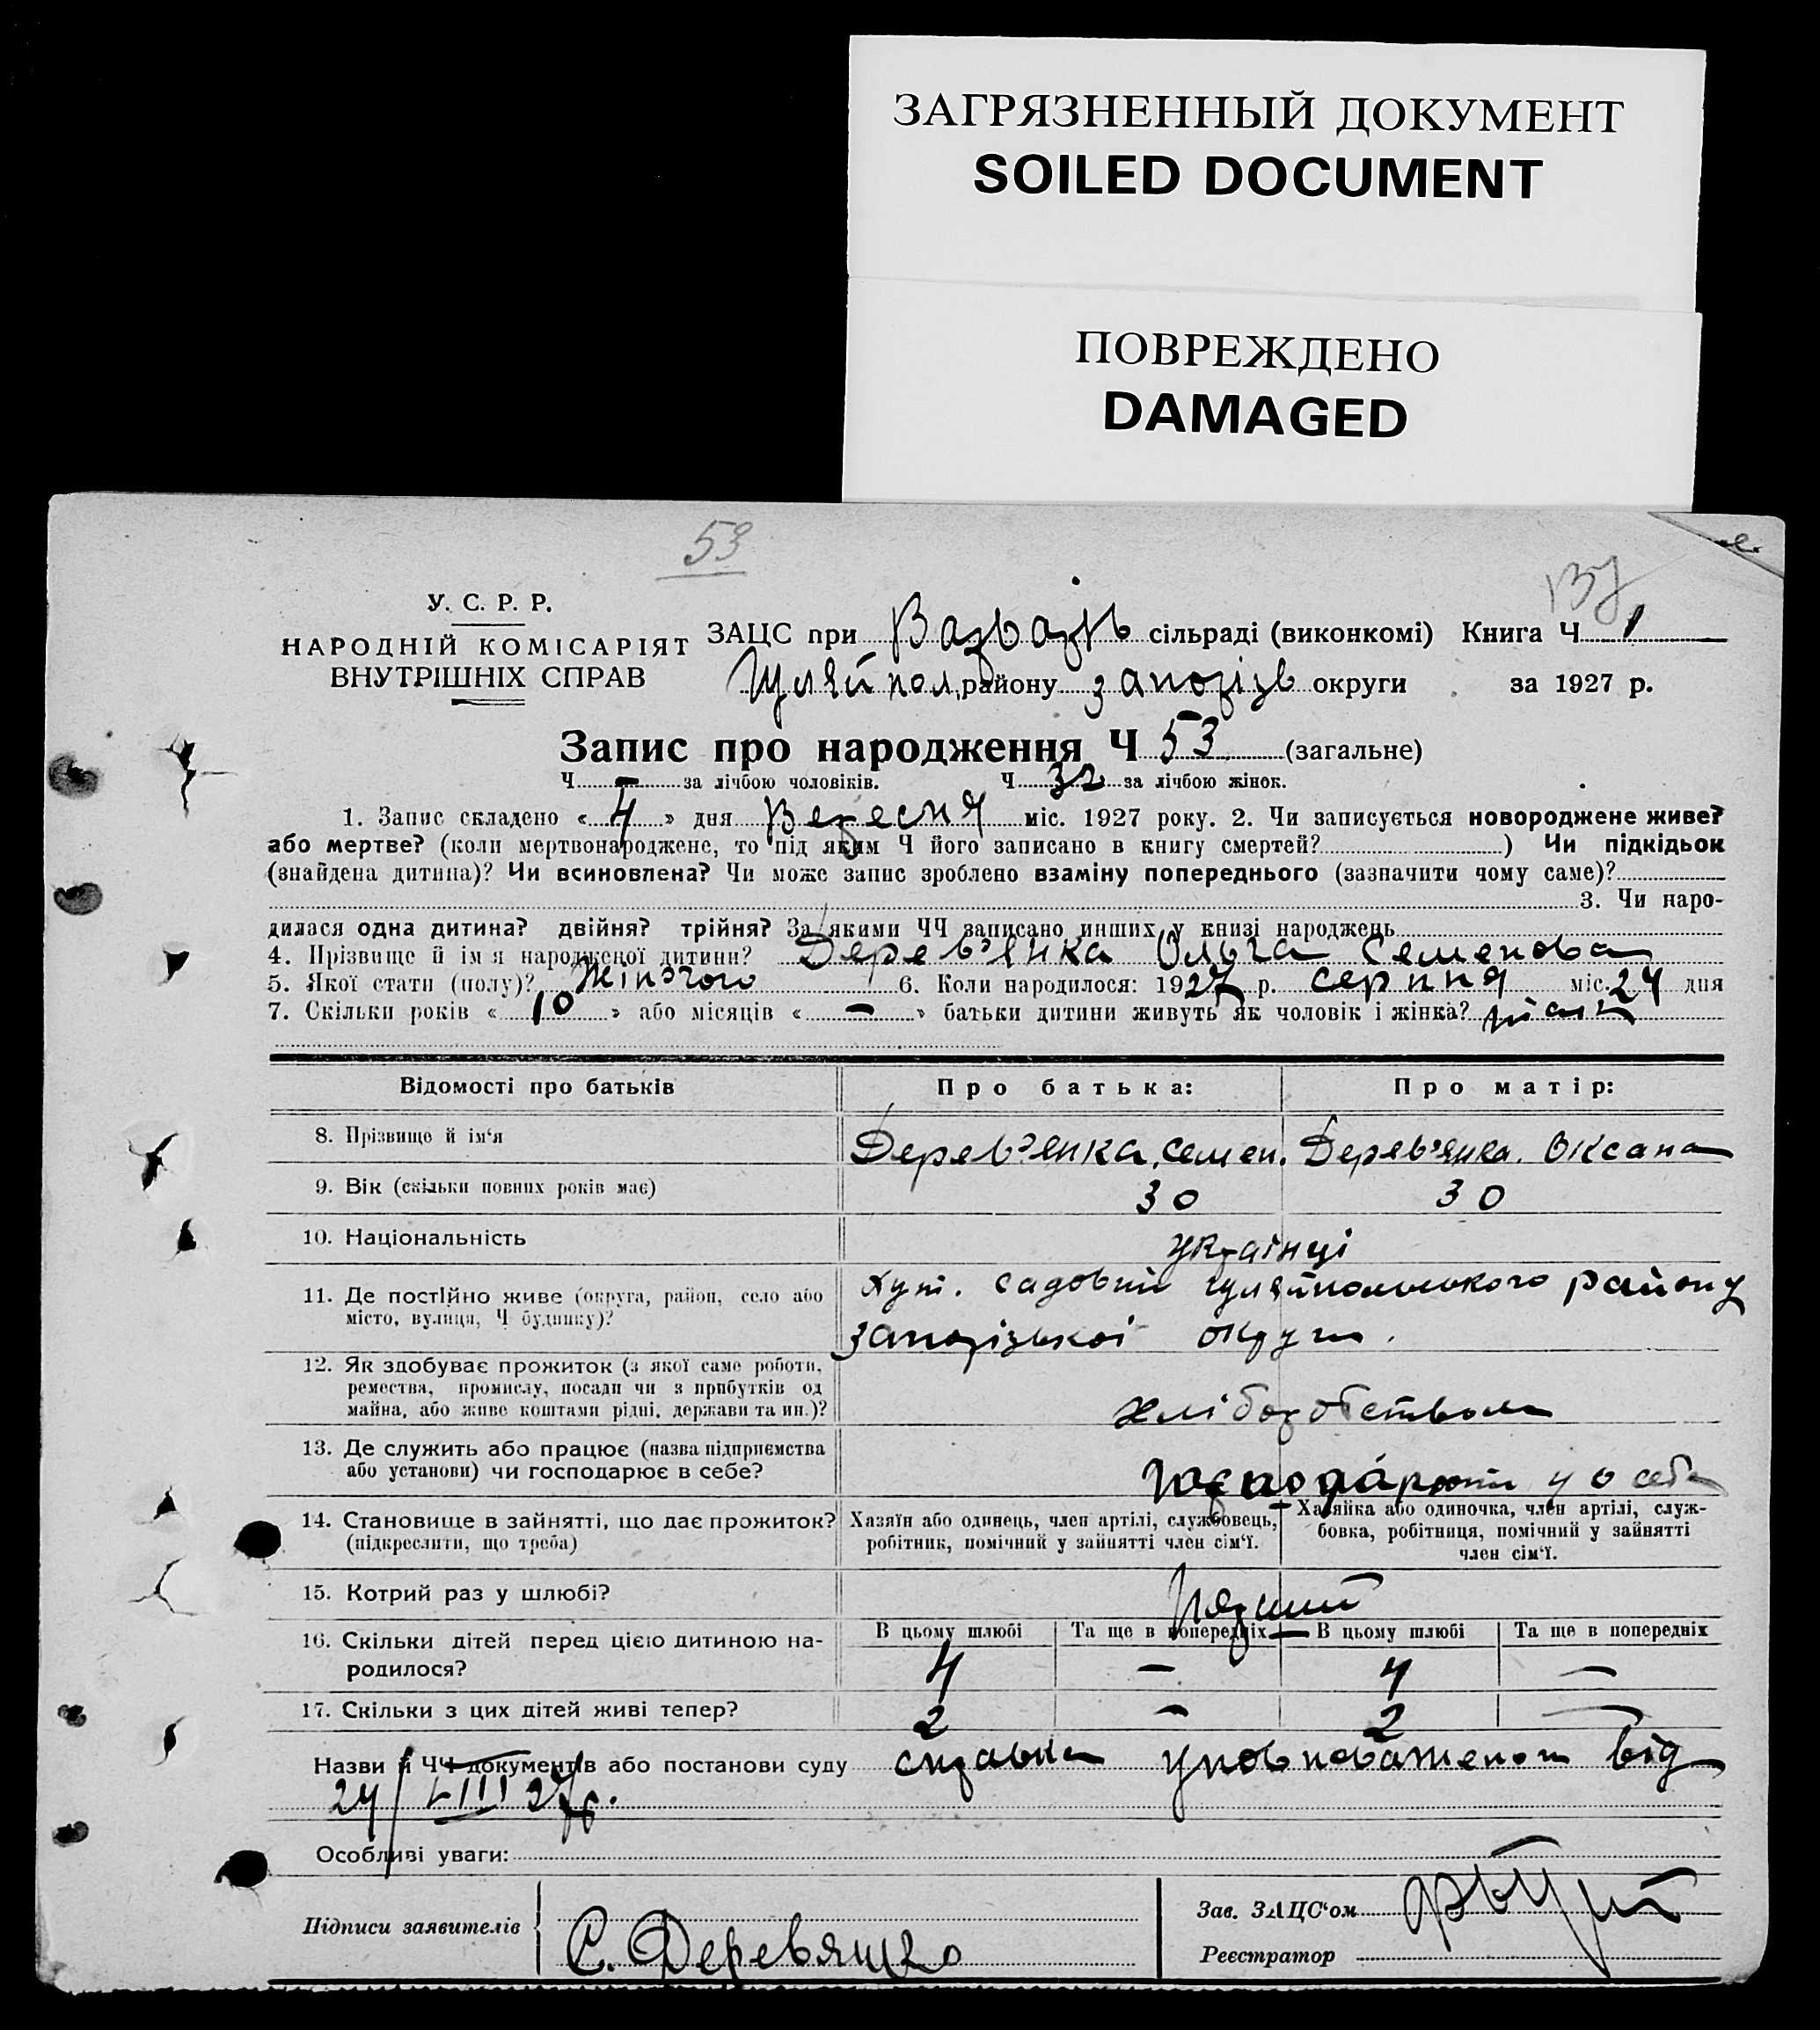 ЗАГРЯЗНЕННЫЙ ДОКУМЕНТ
SOILED DOCUMENT
ПОВРЕЖДЕНО
DAMAGED
53
У. С. Р. Р.
НАРОДНІЙ КОМІСАРІЯТ
ВНУТРІШНІХ СПРАВ
ЗАЦС при сільраді (виконкомі) Книга Ч. 1
Гуляйпол. району Запорізь округи за 1927 р.
Запис про народження Ч 53 (загальне)
Ч. - за лічбою чоловіків. Ч. 32 за лічбою жінок.
1. Запис складено « 4 » дня Вересня міс. 1927 року. 2. Чи записується новороджене живе?
або мертве? (коли мертвонароджене, то під яким Ч його записано в книгу смертей? ) Чи підкідьок
(знайдена дитина)? Чи всиновлена? Чи може запис зроблено взаміну попереднього (зазначити чому саме)?
3. Чи наро-
дилася одна дитина? двійня? трійня? За якими ЧЧ записано инших у книзі народжень
4. Прізвище й ім'я народженої дитини? Дерев'янка Ольга Семенова
5. Якої стати (полу)? Жіночого 6. Коли народилося: 1927 р. серпня міс. 24 дня
7. Скільки років « 10 » або місяців « - » батьки дитини живуть як чоловік і жінка?
Відомості про батьків Про батька: Про матір:
8. Прізвище й ім'я Дерев'янка, Семен. Дерев'янка. Оксана
9. Вік (скільки повних років має) 30 30
10. Національність українці
11. Де постійно живе (округа, район, село або хут. Садовий Гуляйпольського району
місто, вулиця, Ч будинку)? Запорізької округи.
12. Як здобуває прожиток (з якої саме роботи,
ремества, промислу, посади чи з прибутків од
майна, або живе коштами рідні, держави та ин.)? хліборобством
13. Де служить або працює (назва підприємства
або установи) чи господарює в себе? господарюють у себе
14. Становище в зайнятті, що дає прожиток? Хазяїн або одинець, член артілі, службовець, Хазяйка або одиночка, член артілі, служ-
(підкреслити, що треба) робітник, помічний у зайнятті член сім'ї. бовка, робітниця, помічний у зайнятті
член сім'ї.
15. Котрий раз у шлюбі? Перший
16. Скільки дітей перед цією дитиною на- В цьому шлюбі Та ще в попередніх В цьому шлюбі Та ще в попередніх
родилося? 4 - 4 -
17. Скільки з цих дітей живі тепер? 2 - 2 -
Назви й ЧЧ документів або постанови суду справка уповноваженого від
24/VIII 27 р.
Особливі уваги:
Підписи заявителів С. Деревянко
Зав. ЗАЦС'ом
Реєстратор